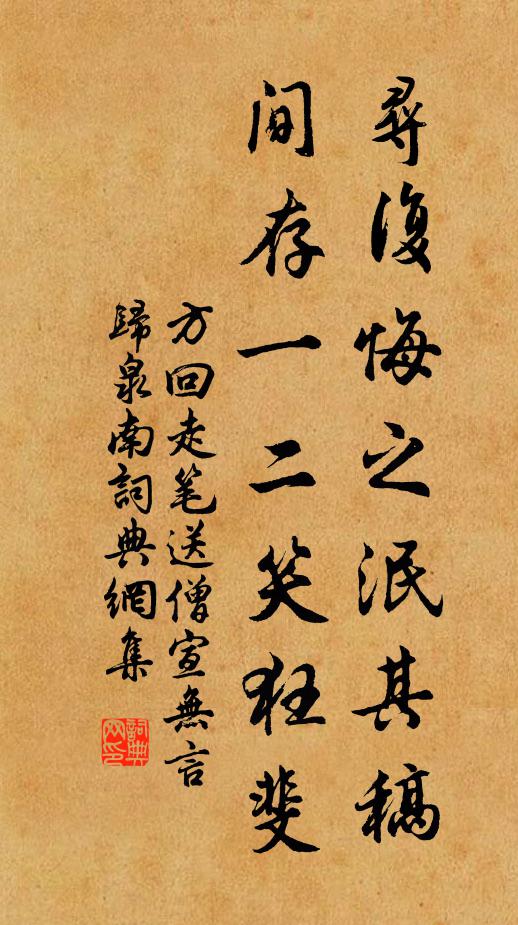 尋復悔之泯其稿
间存一二笑狂斐
方回走笔送僧宣無言
歸泉南詞典網集
詞典网印